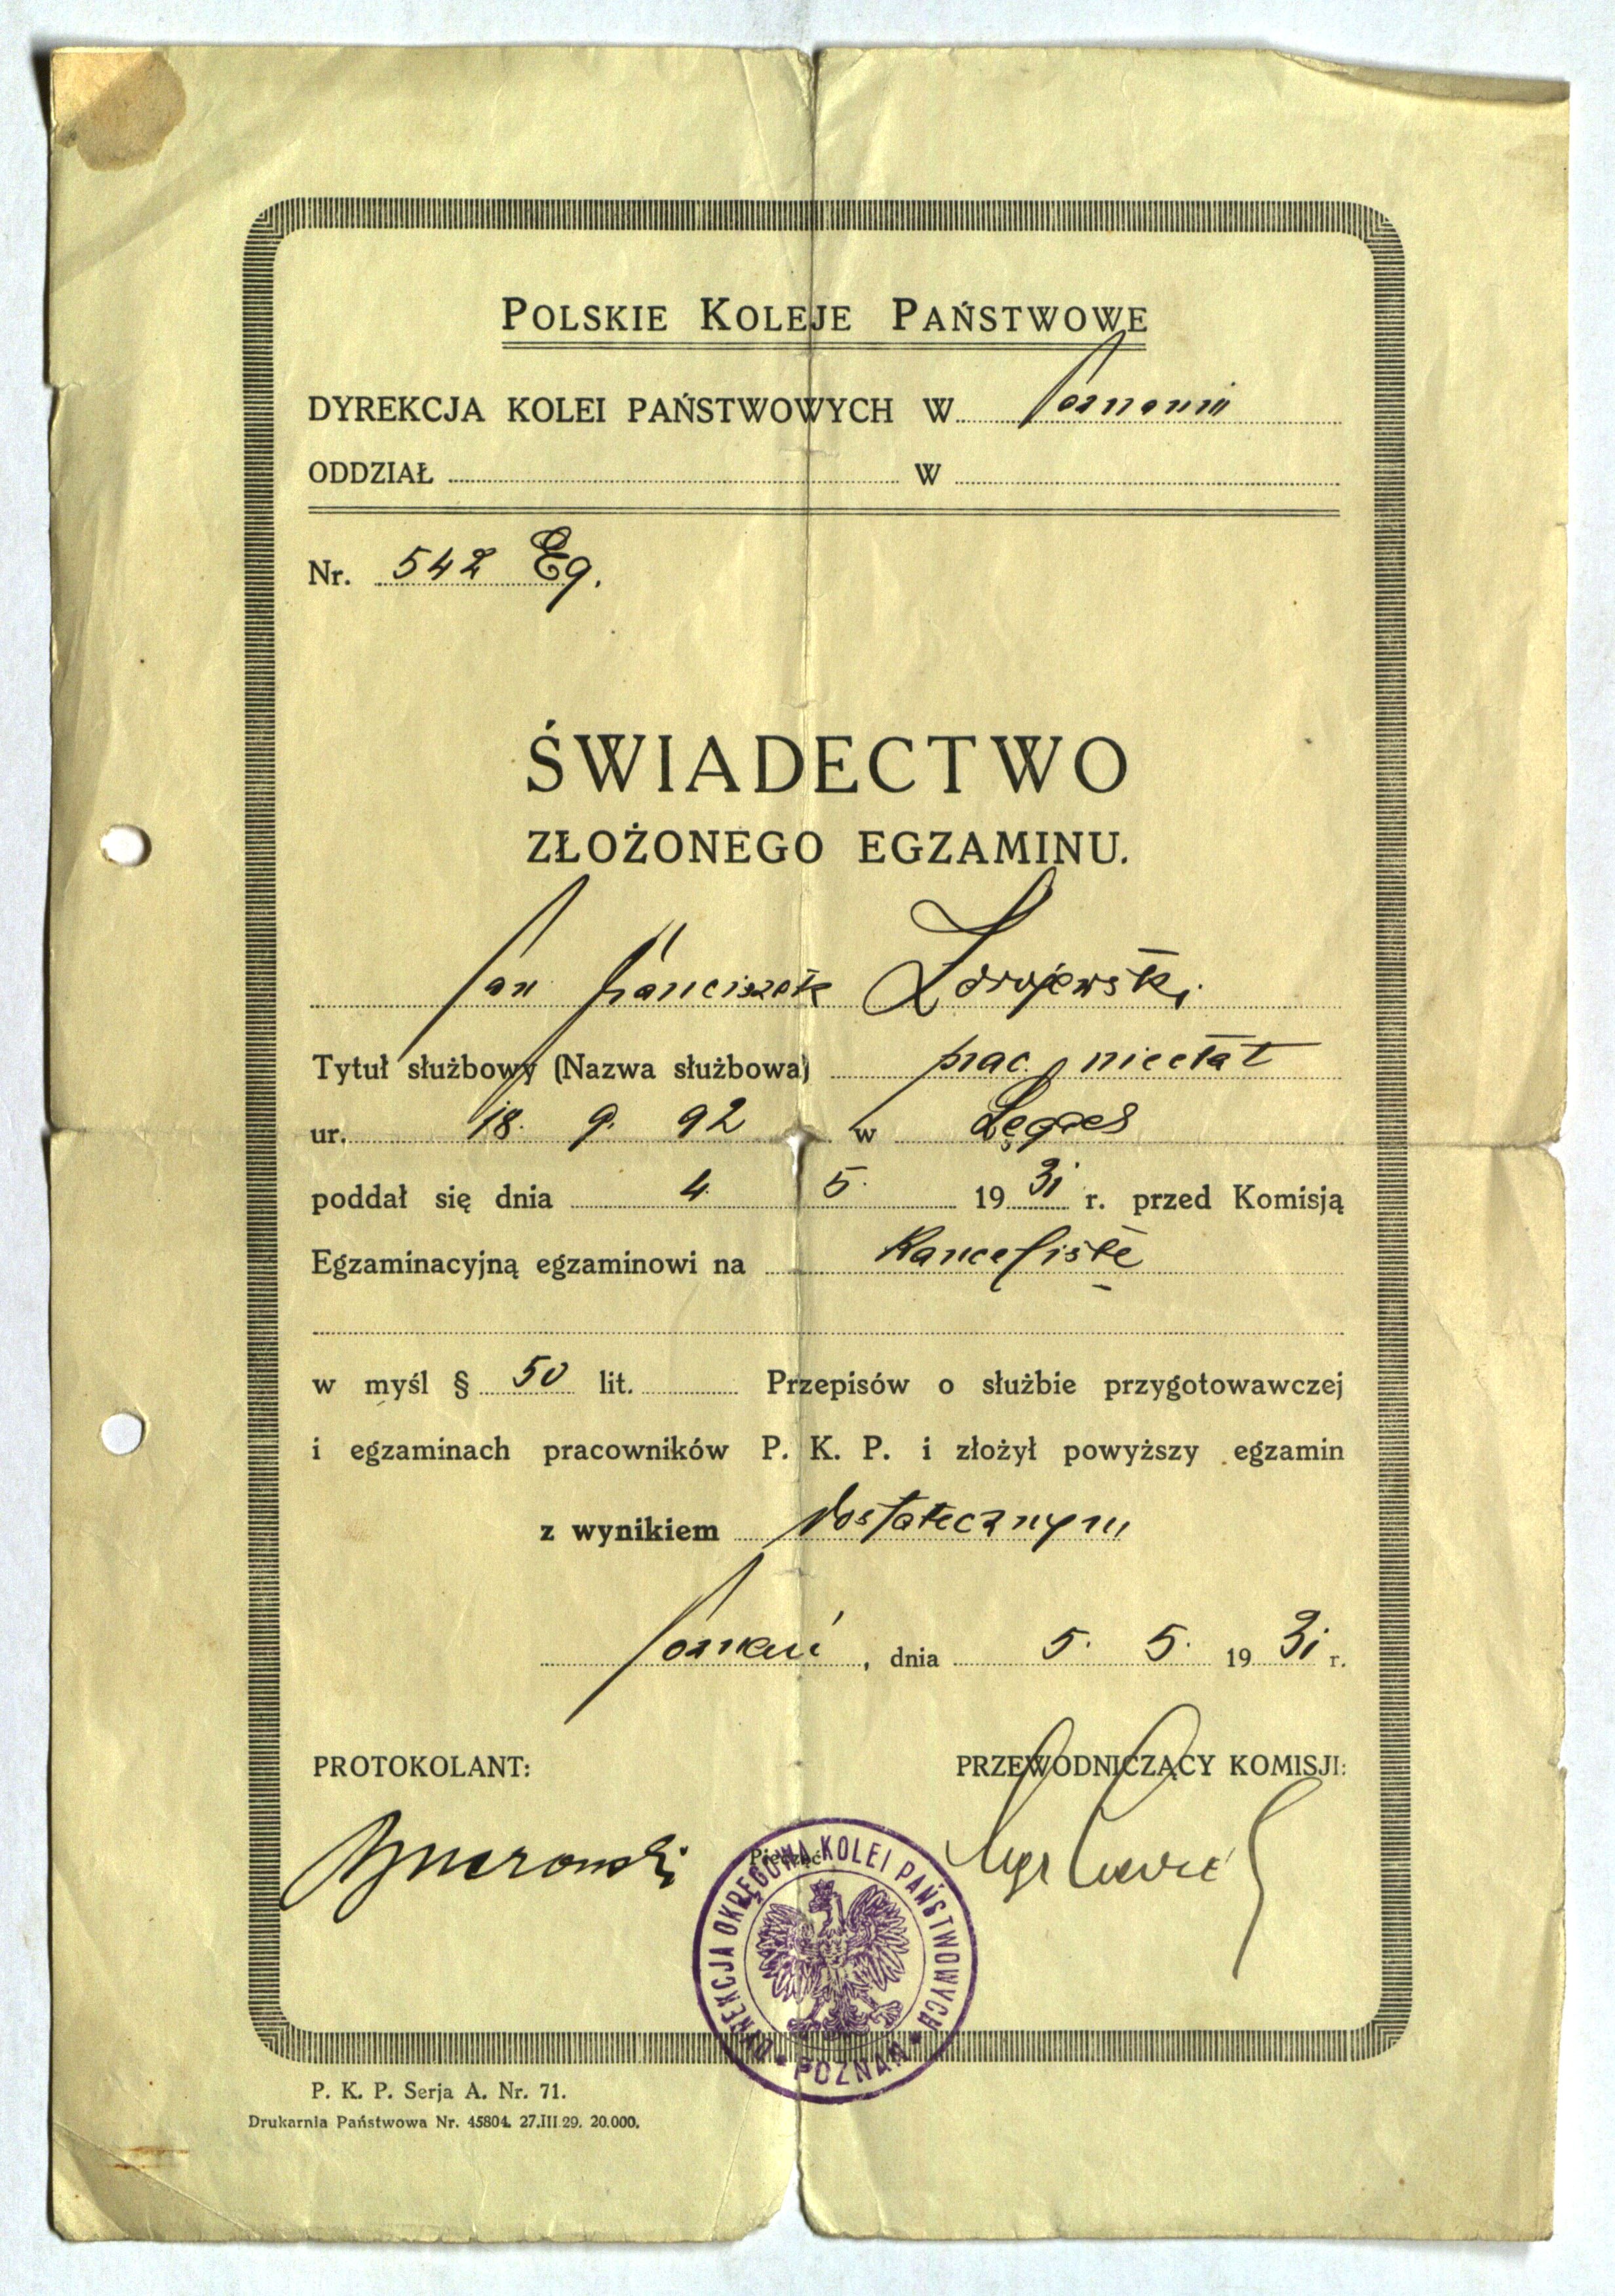 POLSKIE KOLEJE PAŃSTWOWE
DYREKCJA KOLEI PAŃSTWOWYCH W Poznaniu
ODDZIAŁ W
Nr. 542 Eg.
ŚWIADECTWO
ZŁOŻONEGO EGZAMINU.
Jan Franciszek Zdrojewski
Tytuł służbowy (Nazwa służbowa) prac. nieetat
ur. 18. 9. 92 w
poddał się dnia 4. 5. 1931 r. przed Komisją
Egzaminacyjną egzaminowi na Kancelistę
w myśl § 50 lit. Przepisów o służbie przygotowawczej
i egzaminach pracowników P. K. P. i złożył powyższy egzamin
z wynikiem dostatecznym
Poznań, dnia 5. 5. 1931 r.
PROTOKOLANT: PRZEWODNICZĄCY KOMISJI:
Pieczęć
DYREKCJA OKRĘGOWA KOLEI PAŃSTWOWYCH
* POZNAŃ *
P. K. P. Serja A. Nr. 71.
Drukarnia Państwowa Nr. 45804. 27.III 29. 20.000.